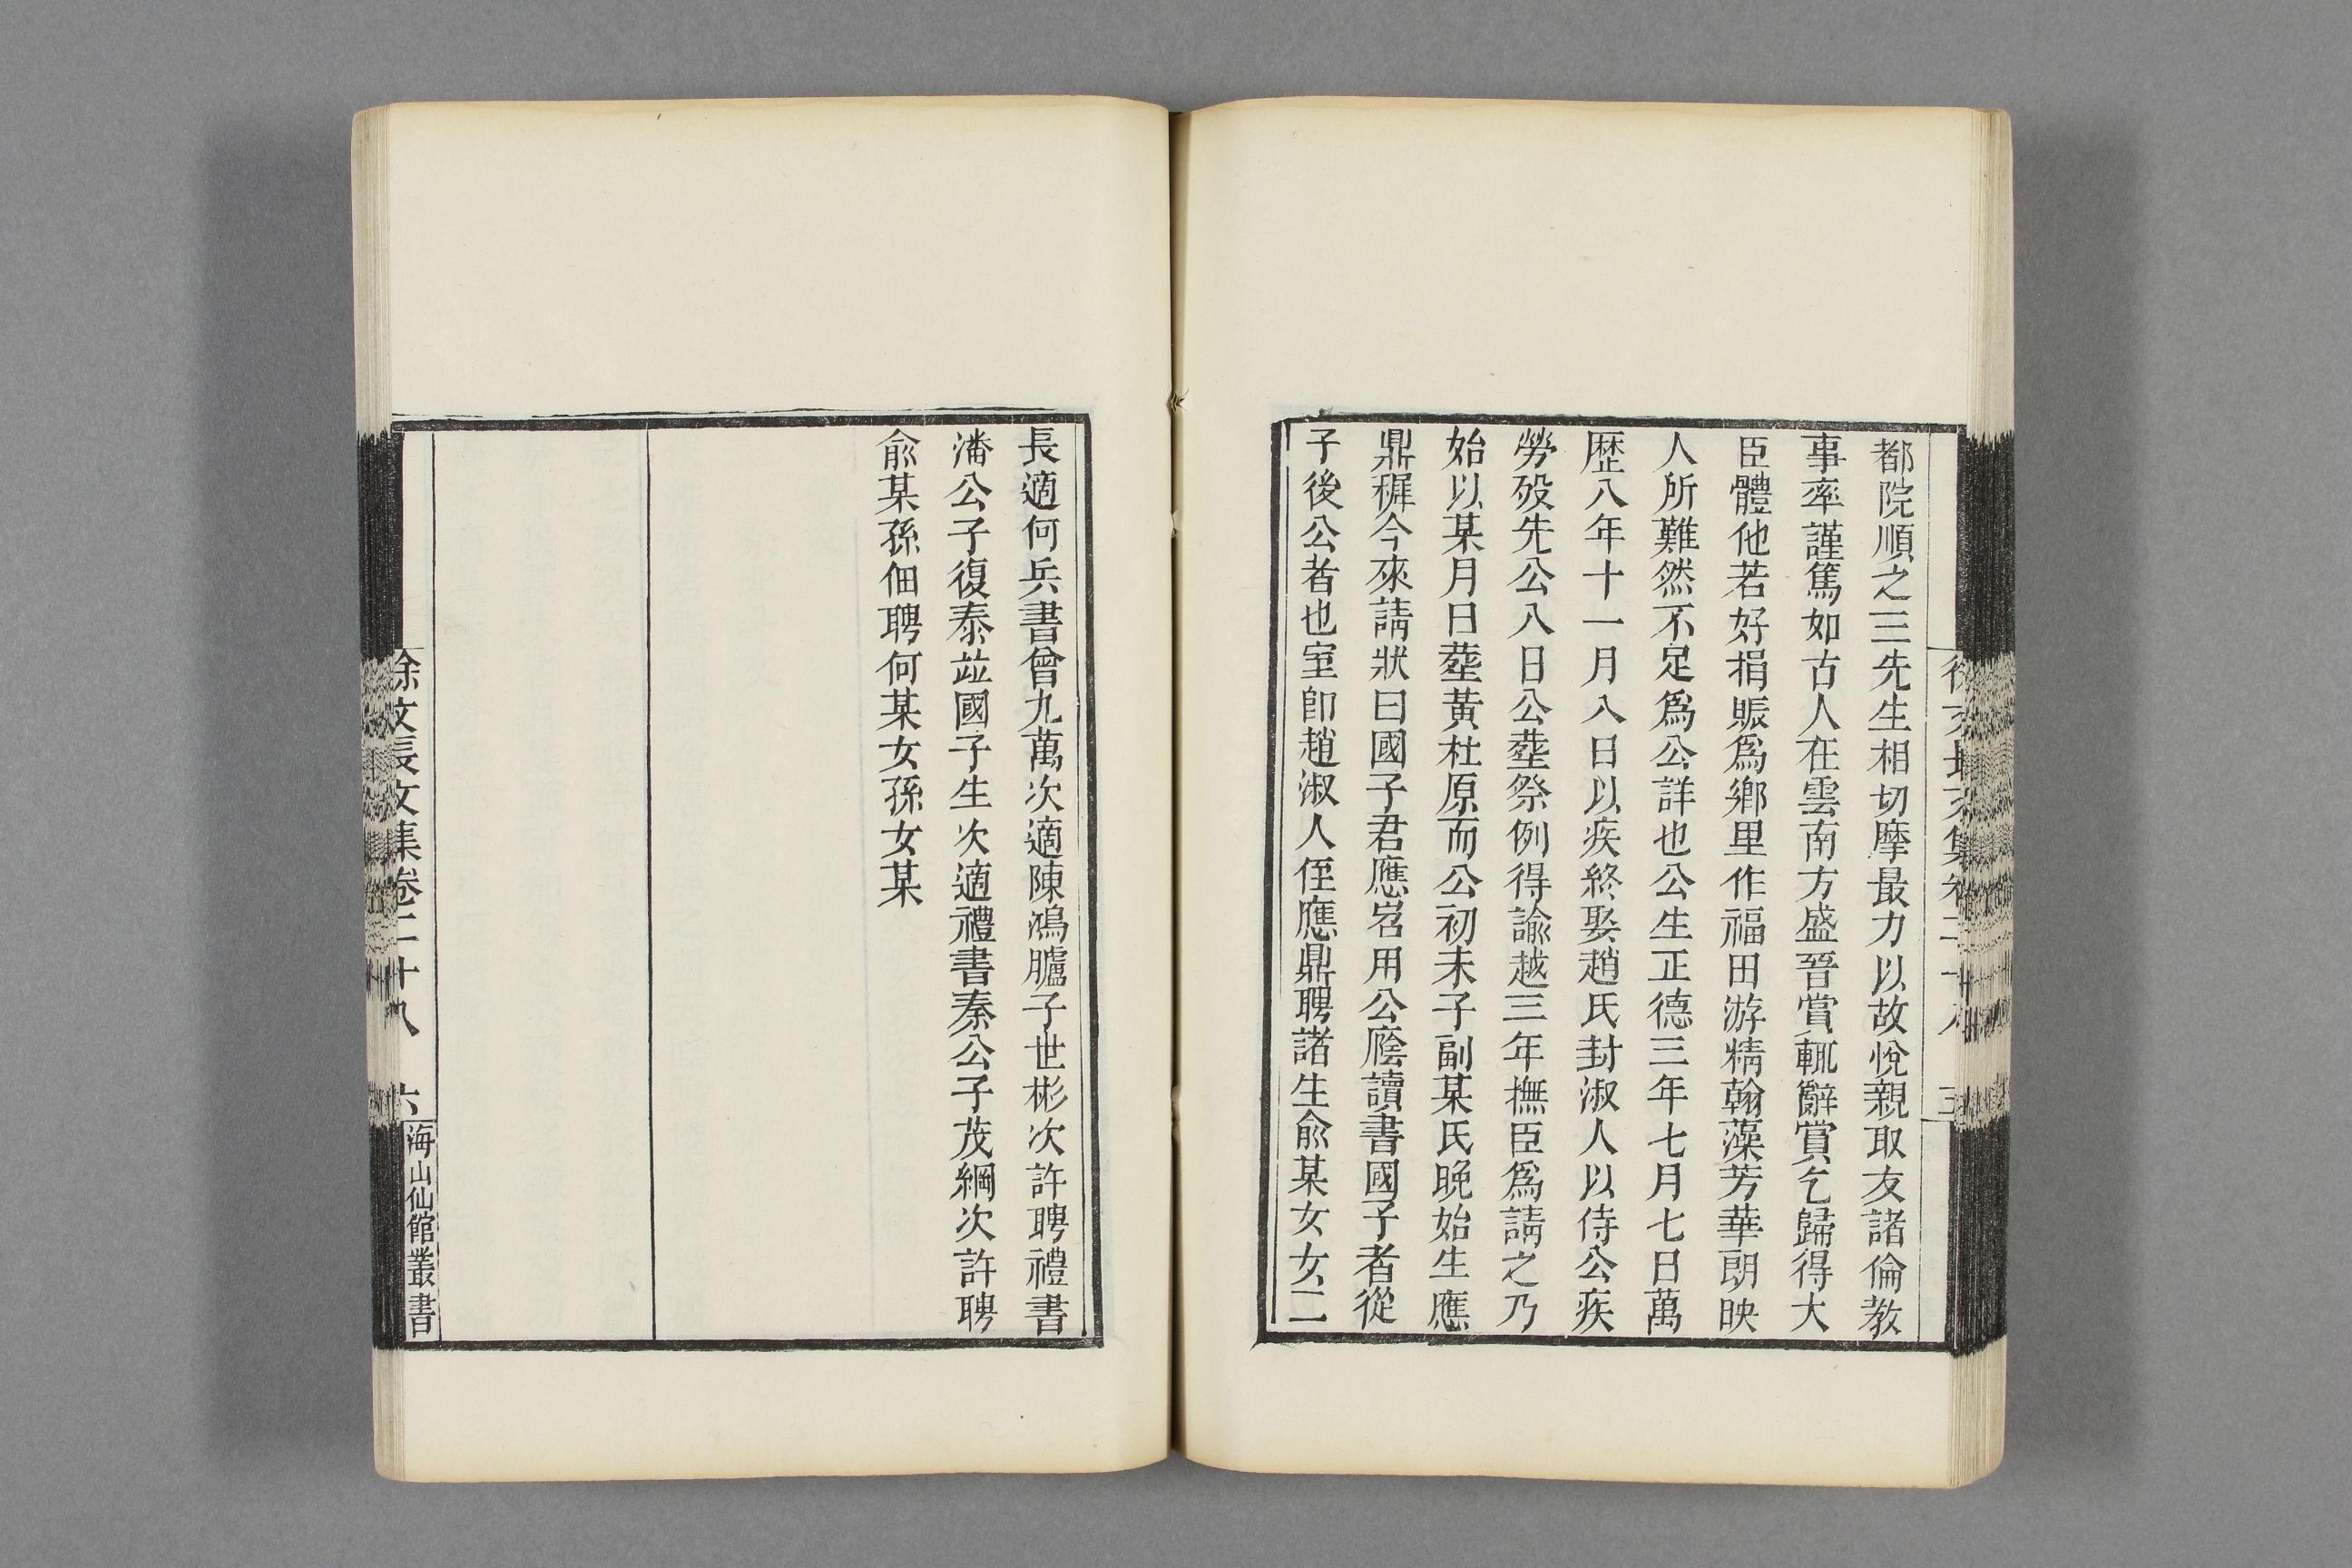 都院順之三先生相切摩最力以故悅親取友諸倫教
事率謹篤如古人在雲南方盛晉賞輒辭賞乞歸得大
臣體他若好捐賑爲鄉里作福田游精翰藻芳華朗映
人所難然不足爲公詳也公生正德三年七月七日萬
歴八年十一月八日以疾終娶趙氏封淑人以侍公疾
勞歿先公八日公塟祭例得諭越三年撫臣爲請之乃
始以某月日塟黃杜原而公初未子副某氏晚始生應
鼎穉今來請狀曰國子君應岩用公廕讀書國子者從
子後公者也室卽趙淑人侄應鼎聘諸生兪某女女二
長適何兵書曾九萬次適陳鴻臚子世彬次許聘禮書
潘公子復泰竝國子生次適禮書秦公子茂綱次許聘
兪某孫佃聘何某女孫女某
徐文長文集卷二十八 六
海山仙館叢書